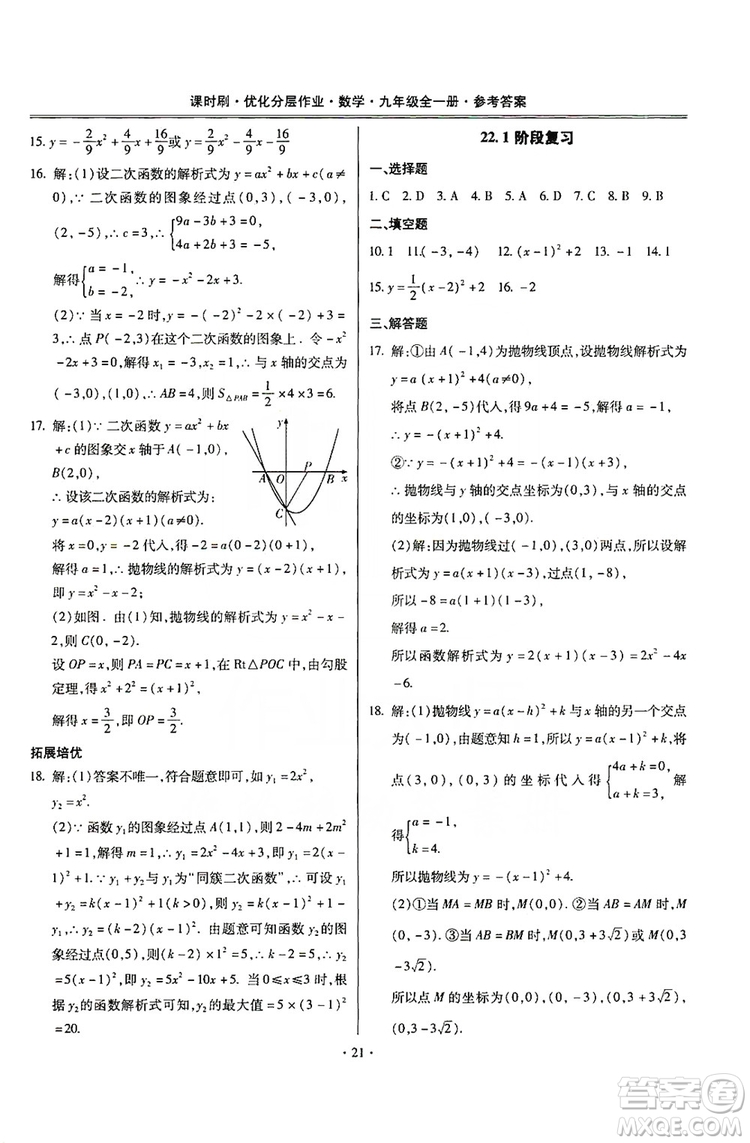 课时刷·优化分层作业·数学·九年级全一册·参考答案
15. y=-2/9x²+4/9x+16/9或y=2/9x²-4/9x-16/9
16. 解:(1)设二次函数的解析式为y=ax²+bx+c(a≠
0),∵二次函数的图象经过点(0,3),(-3,0),
(2,-5),∴c=3,{9a-3b+3=0, 4a+2b+3=-5,
解得{a=-1, b=-2. ∴y=-x²-2x+3.
(2)∵当x=-2时,y=-(-2)²-2×(-2)+3
=3,∴点P(-2,3)在这个二次函数的图象上.令-x²
-2x+3=0,解得x₁=-3,x₂=1.∴与x轴的交点为
(-3,0),(1,0),∴AB=4,则S△PAB=1/2×4×3=6.
17. 解:(1)∵二次函数y=ax²+bx
+c的图象交x轴于A(-1,0),
B(2,0),
∴设该二次函数的解析式为:
y=a(x-2)(x+1)(a≠0).
将x=0,y=-2代入,得-2=a(0-2)(0+1).
解得a=1,∴抛物线的解析式为y=(x-2)(x+1),
即y=x²-x-2;
(2)如图.由(1)知,抛物线的解析式为y=x²-x-
2,则C(0,-2).
设OP=x,则PA=PC=x+1,在Rt△POC中,由勾股
定理,得x²+2²=(x+1)²,
解得x=3/2,即OP=3/2.
y
A O P B x
C
拓展培优
18. 解:(1)答案不唯一,符合题意即可,如y₁=2x²,
y₂=x².
(2)∵函数y₁的图象经过点A(1,1),则2-4m+2m²
+1+1=1,解得m=1,∴y₁=2x²-4x+3=2(x-1)²
+1,∵y₁+y₂与y₁为“同簇二次函数”,∴可设y₁
+y₂=k(x-1)²+1(k>0),则y₂=k(x-1)²+1-y₁
=(k-2)(x-1)².由题意可知函数y₂的图象经
过点(0,5),则(k-2)×1²=5,∴k-2=5,∴y₂
=5(x-1)²=5x²-10x+5.当0≤x≤3时,根
据y₂的函数解析式可知,y₂的最大值=5×(3-1)²
=20.
22.1 阶段复习
一、选择题
1. C 2. D 3. A 4. C 5. D 6. B 7. C 8. B 9. B
二、填空题
10. 1 11.(-3,-4) 12.(x-1)²+2 13. 11 14. 1
15. y=1/2(x-2)²+2 16. -2
三、解答题
17. 解:①由A(-1,4)为抛物线顶点,设抛物线解析式为
y=a(x+1)²+4(a≠0).
将点B(2,-5)代入,得9a+4=-5,解得a=-1.
∴y=-(x+1)²+4.
②∵y=-(x+1)²+4,
∴抛物线与y轴的交点坐标为(0,3),与x轴的交点
坐标为(1,0),(-3,0).
(2)解:因为抛物线过(-1,0),(3,0)两点,所以设解
析式为y=a(x+1)(x-3),过点(1,-8),
所以-8=a(1+1)×(1-3),
解得a=2.
所以函数解析式为y=2(x+1)(x-3)=2x²-4x
-6.
18. 解:(1)抛物线y=a(x-h)²+k与x轴的另一个交点
为(-1,0),由题意知h=1,所以y=a(x-1)²+k,将
点(3,0),(0,3)的坐标代入得{4a+k=0, a+k=3, 解
得{a=-1, k=4.
所以抛物线为y=-(x-1)²+4.
(2)①当MA=MB时,M(0,0);②当AB=AM时,
M(0,-3);③当AB=BM时,M(0,3+3√2)或M(0,3
-3√2).
所以点M的坐标为(0,0),(0,-3),(0,3+3√2),
(0,3-3√2).
·21·
答案圈
MXQE.COM